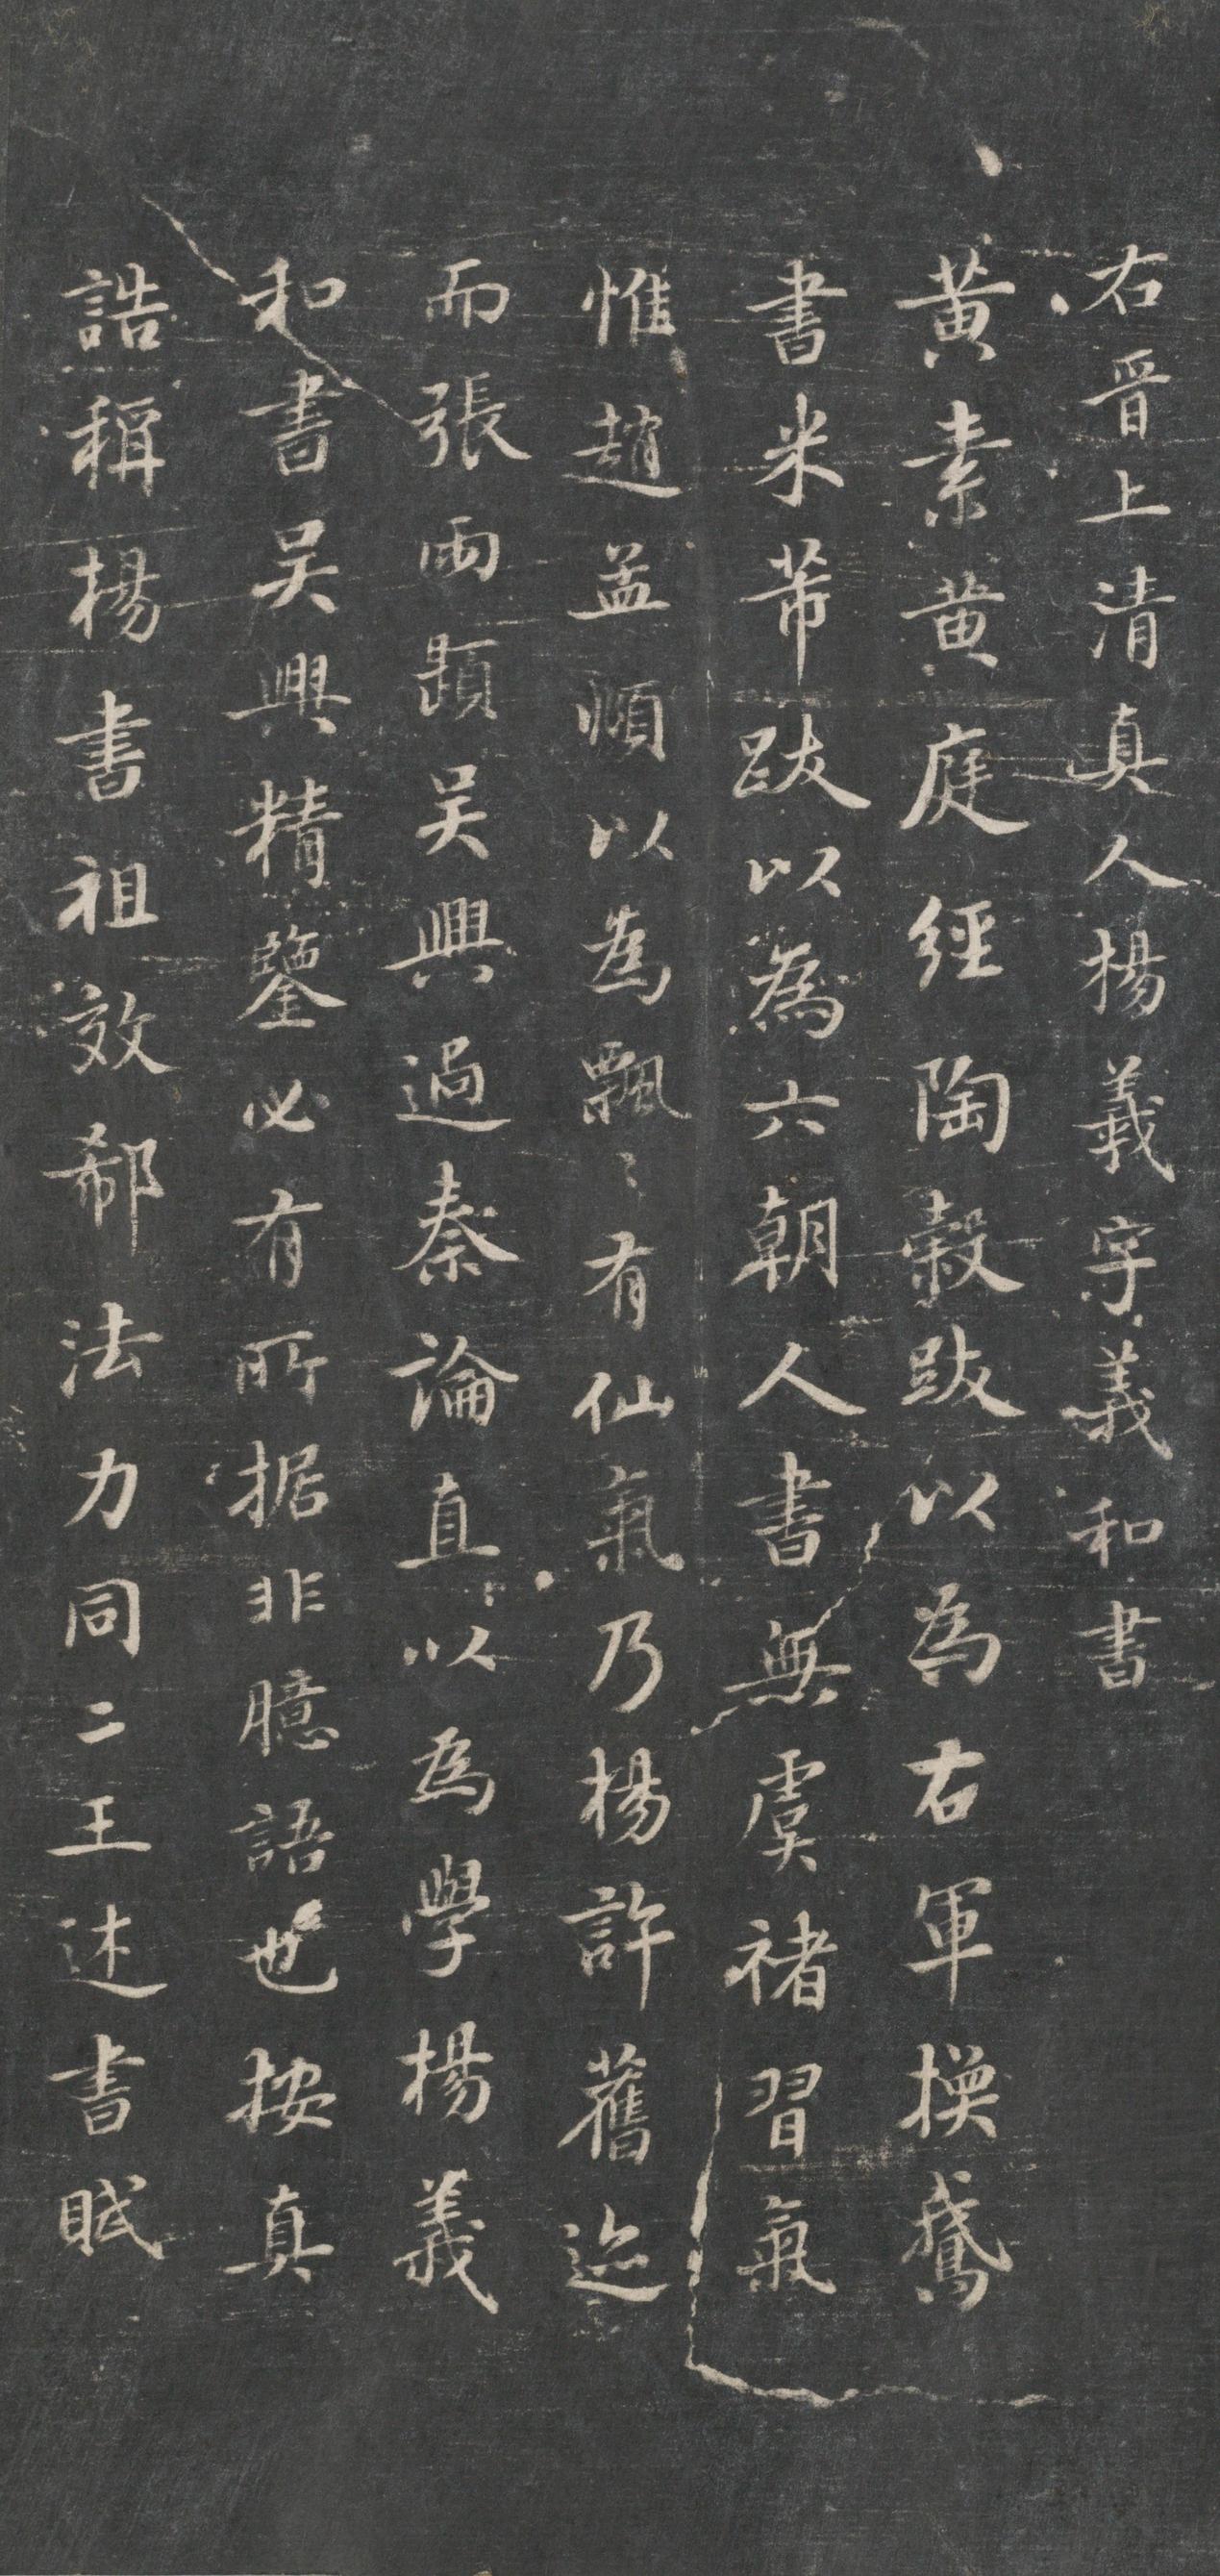 右晉上清真人楊羲字義和書
黃素黃庭經陶穀跋以為右軍換鵞
書米芾跋以為六朝人書無虞褚習氣
惟趙孟頫以為飄〻有仙氣乃楊許舊迹
而張雨題吳興過秦論直以為學楊義
和書吳興精鑒必有所据非臆語也按真
誥稱楊書祖效郗法力同二王述書賦